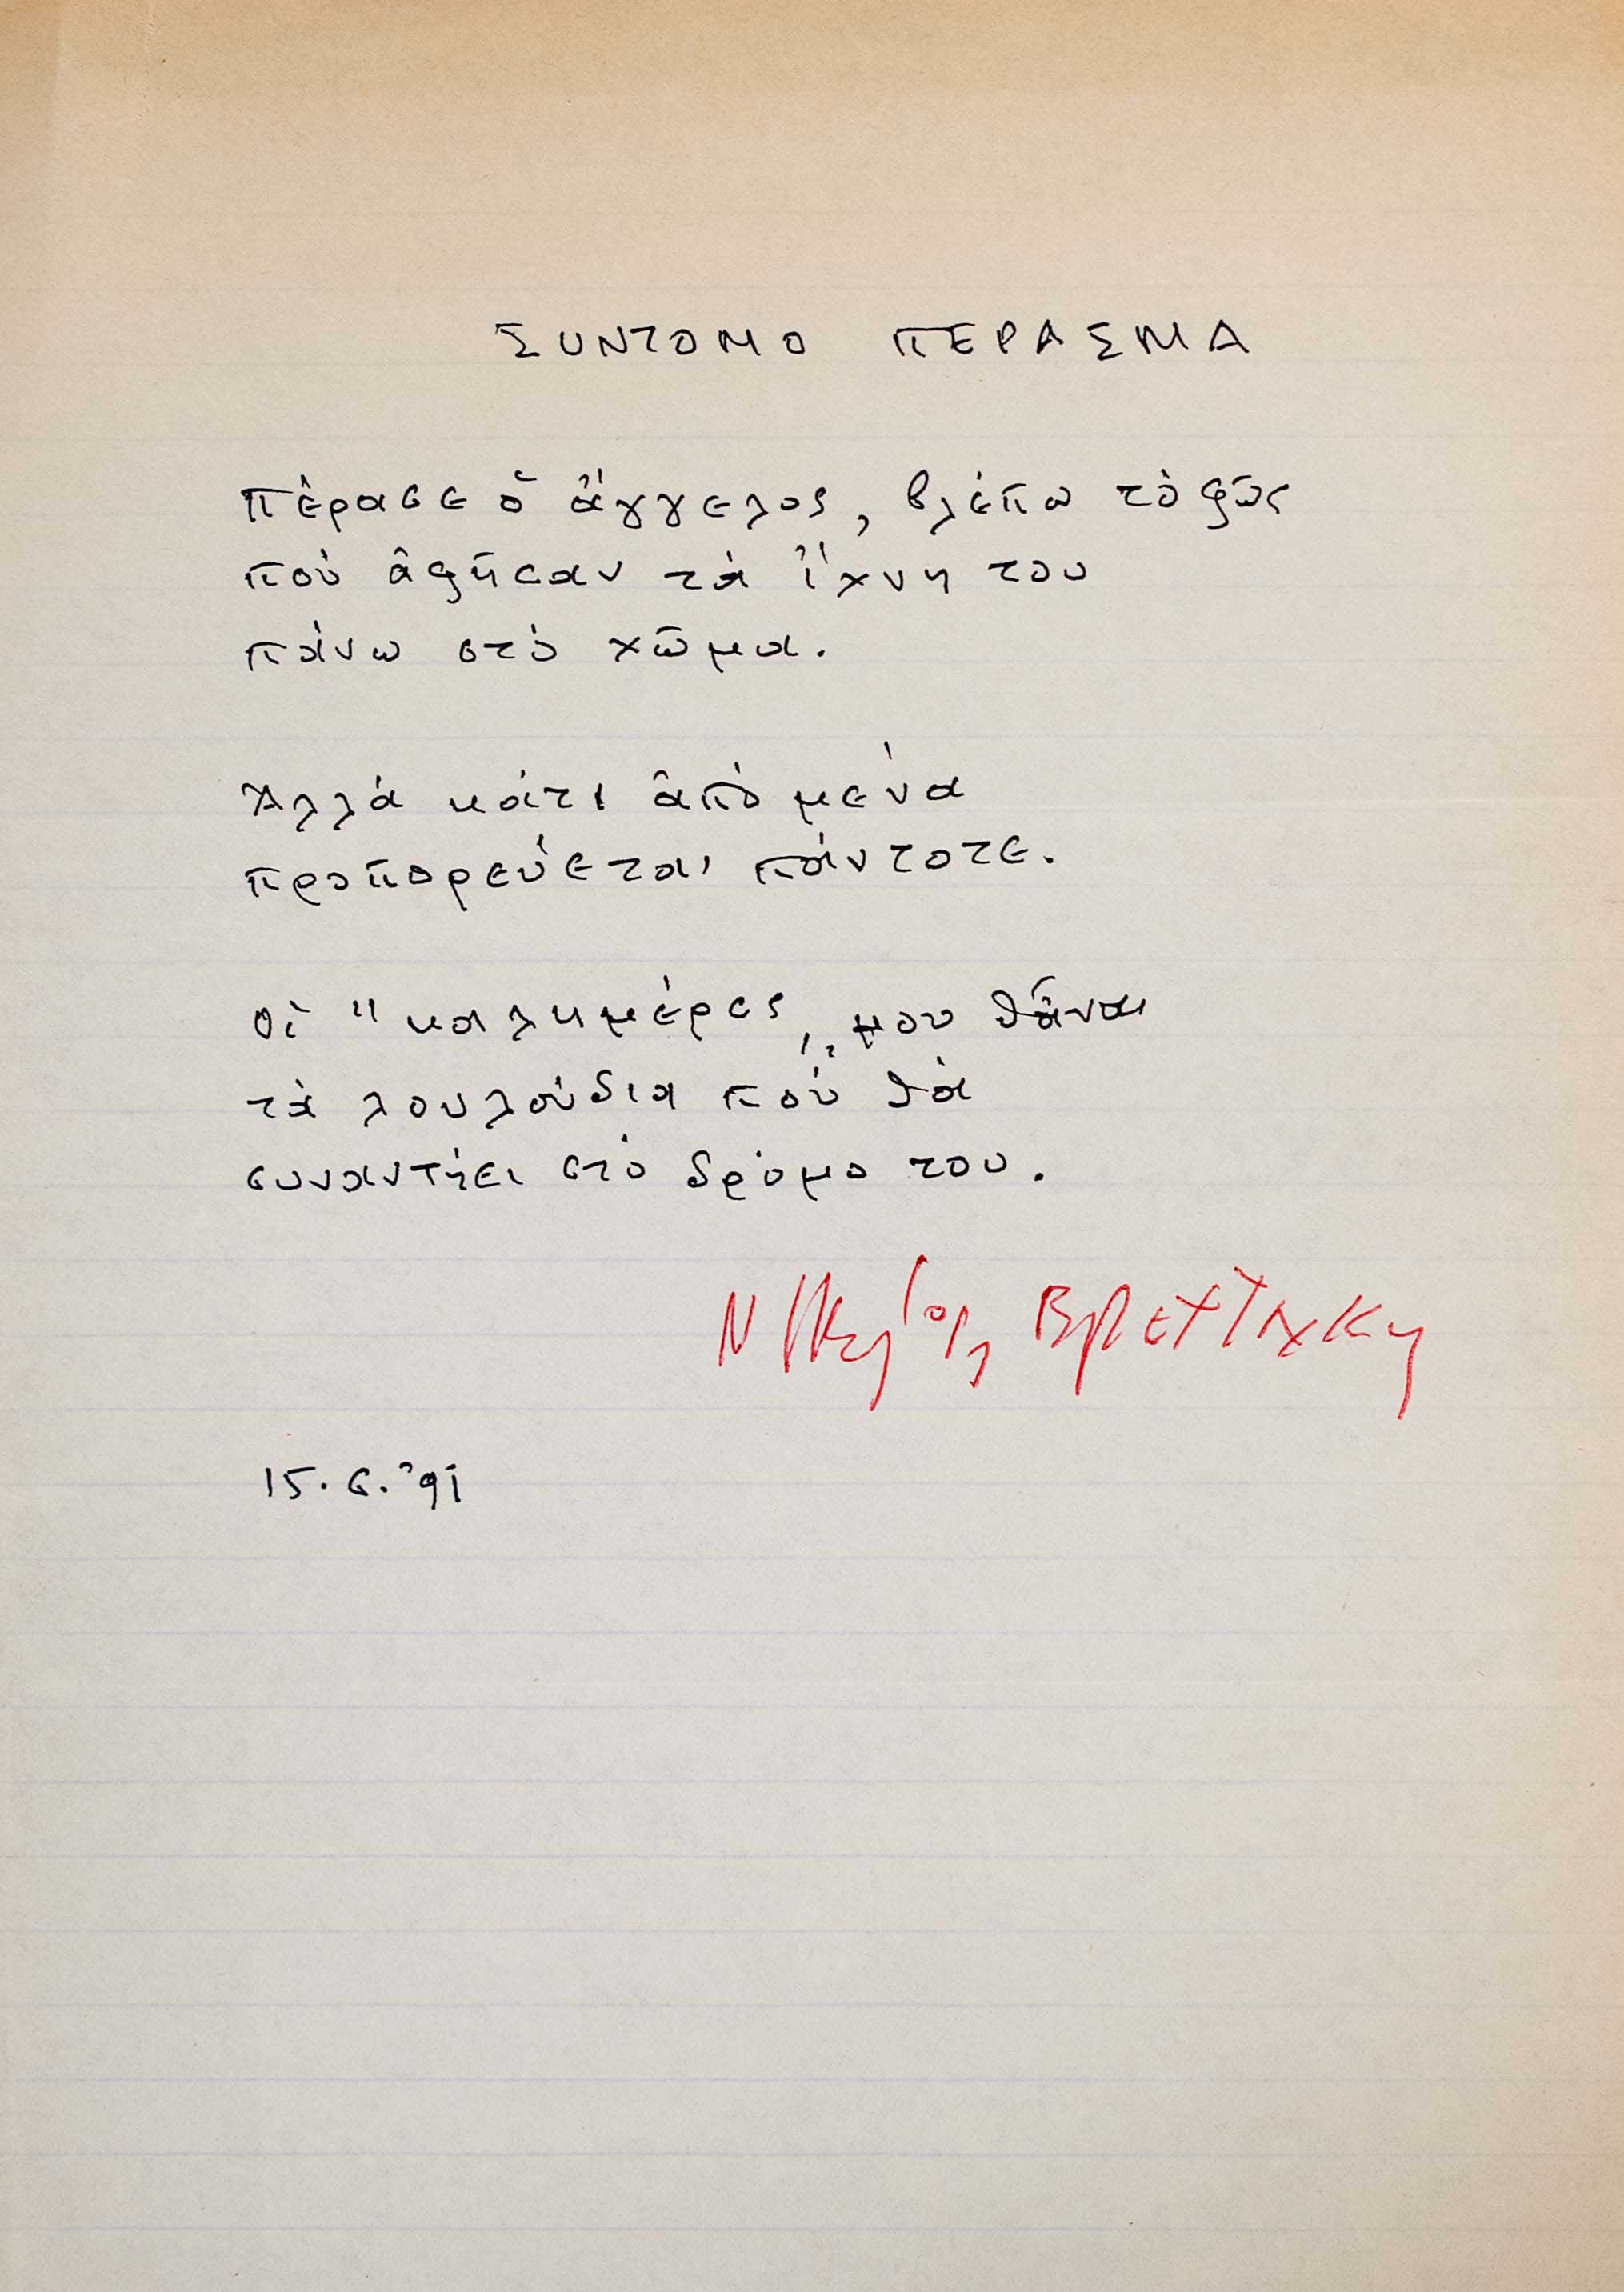 ΣΥΝΤΟΜΟ ΠΕΡΑΣΜΑ
Πέρασε ὁ ἄγγελος, βλέπω τὸ φῶς
ποὺ ἀφῆσαν τὰ ἴχνη του
πάνω στὸ χῶμα.
Ἀλλὰ κάτι ἀπὸ μένα
προπορεύεται πάντοτε.
Οἱ "καλημέρες,, μου θἆναι
τὰ λουλούδια ποὺ θὰ
συναντήσει στὸ δρόμο του.
Νικηφόρος Βρεττάκος
15.6.'91